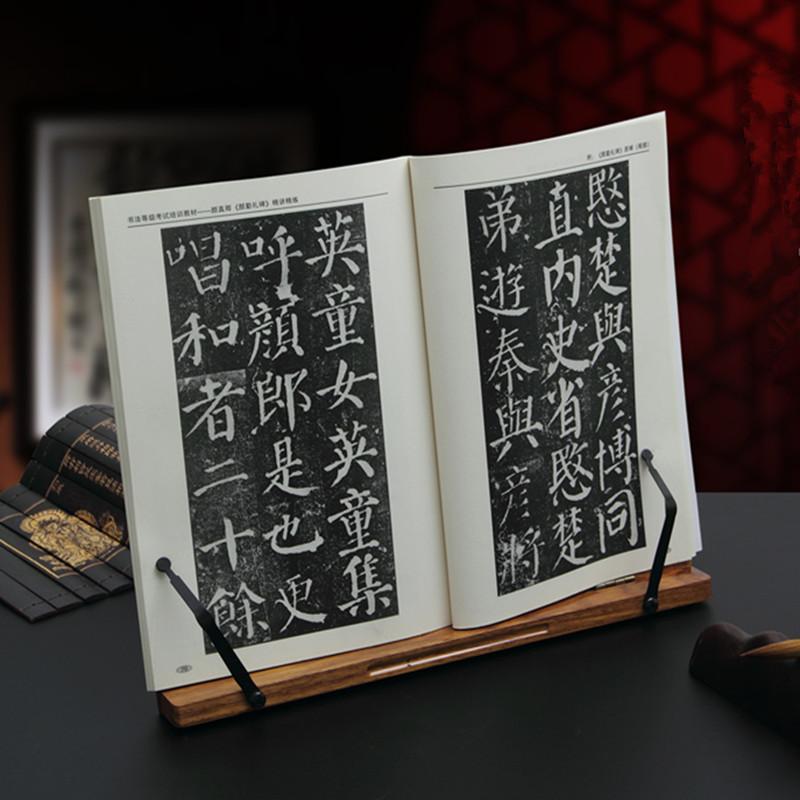 书法等级考试培训教材——颜真卿《颜勤礼碑》精讲精练
英童女英童集
呼顏郎是也更
唱和者二十餘
附：《颜勤礼碑》原碑
愍楚與彦博同
直内史省愍楚
弟遊秦與彦將